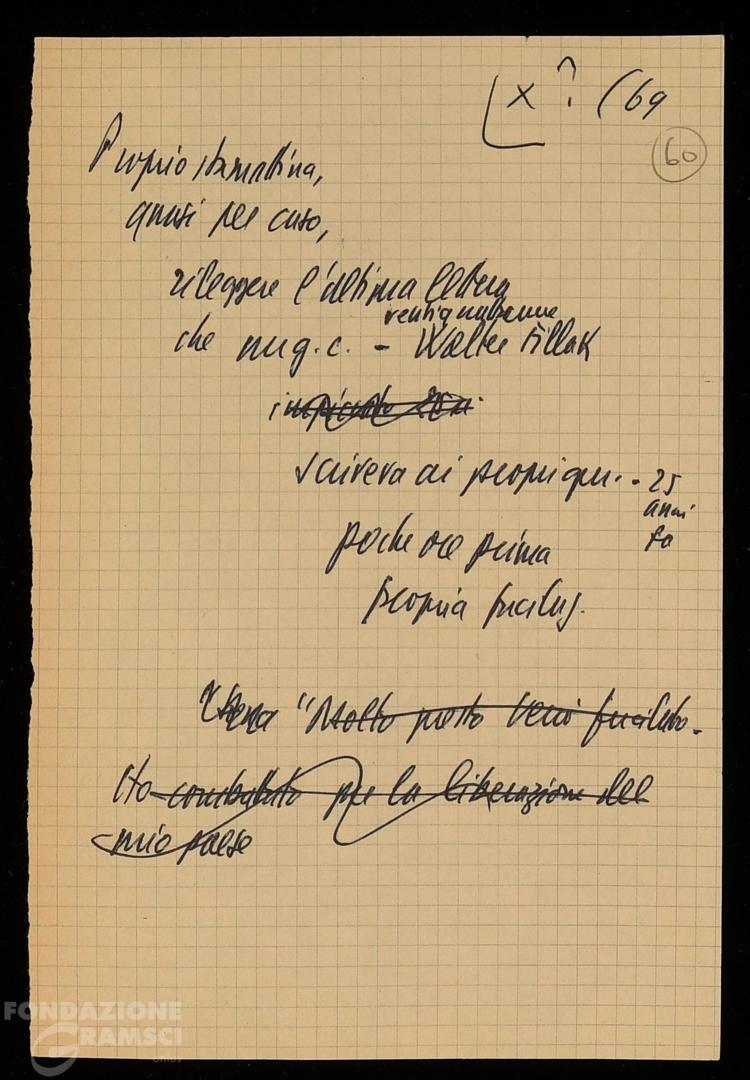 x ? (69
60
Proprio stamattina,
quasi per caso,
rileggere l'ultima lettera
ventiquattrenne
che un g.c. - Walter Fillak
impiccato
scriveva ai propri gen.. - 25
anni
fa
poche ore prima
propria fucilaz.
"Molto presto verrò fucilato.
Ho combattuto per la liberazione del
mio paese
FONDAZIONE
GRAMSCI
onlus